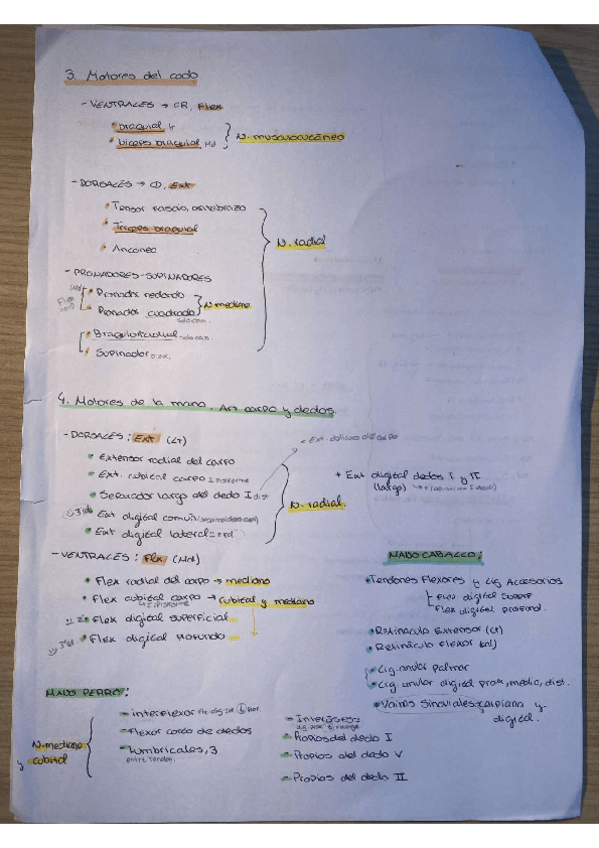 3. Motores del codo
- VENTRALES → CR, Flex
• Braquial
• Bíceps braquial Md
N. musculocutáneo
- DORSALES → Ext
• Tensor fascia antebrazo
• Tríceps braquial
• Anconeo
N. radial
- PRONADORES-SUPINADORES
• Pronador redondo
• Pronador cuadrado
N. mediano
• Braquiorradial
• Supinador
4. Motores de la mano. Art carpo y dedos
- DORSALES: Ext (Lt)
• Extensor radial del carpo
• Ext. cubital carpo
• Separador largo del dedo I
• Ext digital común
• Ext digital lateral
N. radial.
= Ext. oblicuo del carpo
+ Ext digital dedos I y II
(largo)
- VENTRALES: Flex (Md)
• Flex radial del carpo → mediano
• Flex cubital carpo → cubital y mediano
• Flex digital superficial
• Flex digital profundo
MANO CABALLO:
• Tendones Flexores y Lig Accesorios
Flex digital superf
Flex digital profund.
• Retináculo Extensor
• Retináculo Flexor
• Lig. anular palmar
• Lig. anular digital prox, medio, dist.
• Vainas sinoviales carpiana y
digital.
MANO PERRO:
N. mediano
y cubital
- interflexor
- Flexor corto de dedos
- Lumbricales, 3
entre tendon.
- Interóseos
- Propios del dedo I
- Propios del dedo V
- Propios del dedo II